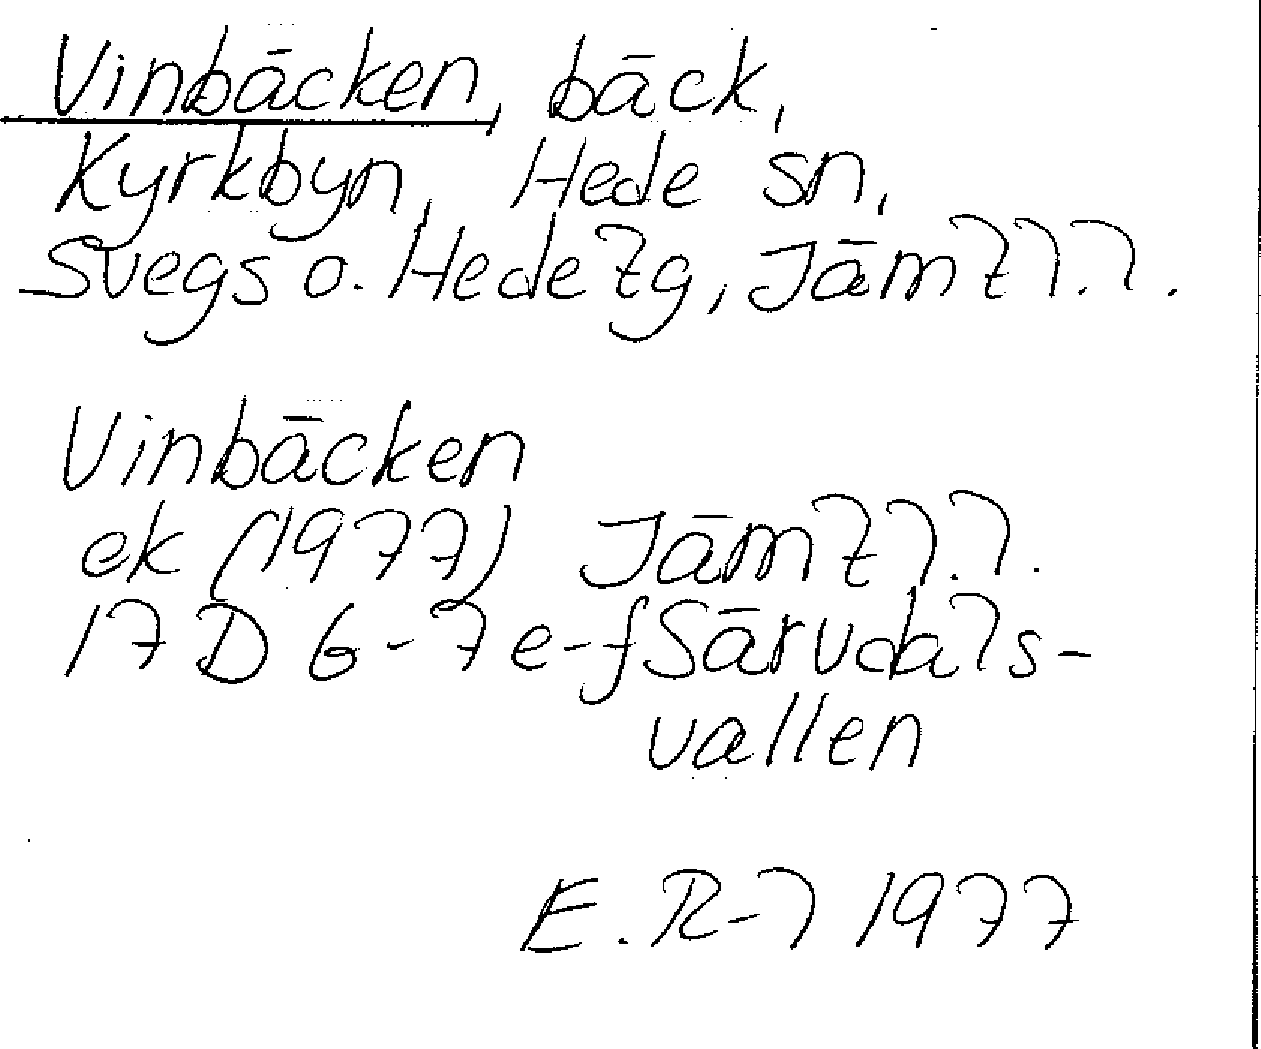 Vinbäcken, bäck,
Kyrkbyn, Hede sn,
Svegs o. Hede tg, Jämtl.l.
Vinbäcken
ek (1977) Jämtl.l.
17D 6-7 e-f Särvdals-
vallen
E.R-l 1977